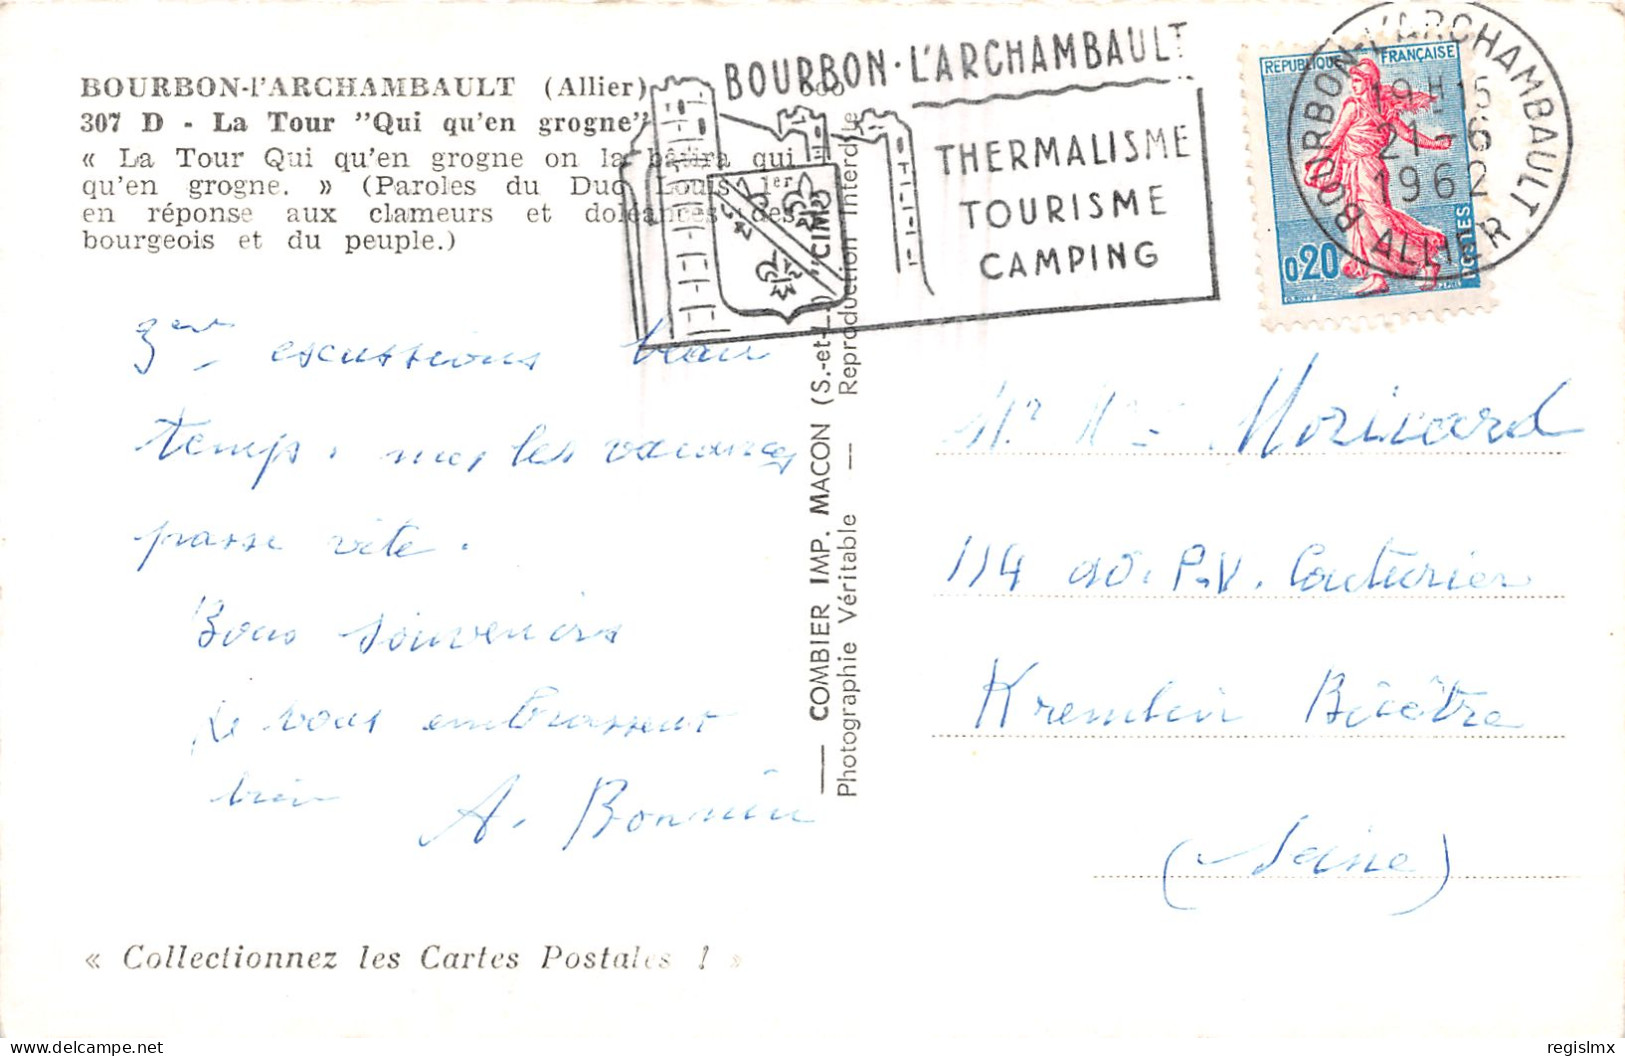 BOURBON-l'ARCHAMBAULT (Allier)
307 D - La Tour "Qui qu'en grogne"
« La Tour Qui qu'en grogne on la bâtira qui
qu'en grogne. » (Paroles du Duc Louis 1er
en réponse aux clameurs et doléances des
bourgeois et du peuple.)
BOURBON·L'ARCHAMBAULT
THERMALISME
TOURISME
CAMPING
REPUBLIQUE FRANÇAISE
0,20
POSTES
BOURBON-L'ARCHAMBAULT
19H15
21-6
1962
ALLIER
— COMBIER IMP. MACON (S.-et-L.) "CIM"
Photographie Véritable — Reproduction Interdite
escussions beau
temps. mes les vacances
passe vite.
Bons souvenirs
Je vous embrassent
bien A. Bonnin
Mr Mme Moricard
114 av. P.V. Couturier
Kremlin Bicêtre
(Seine)
« Collectionnez les Cartes Postales ! »
regislmx